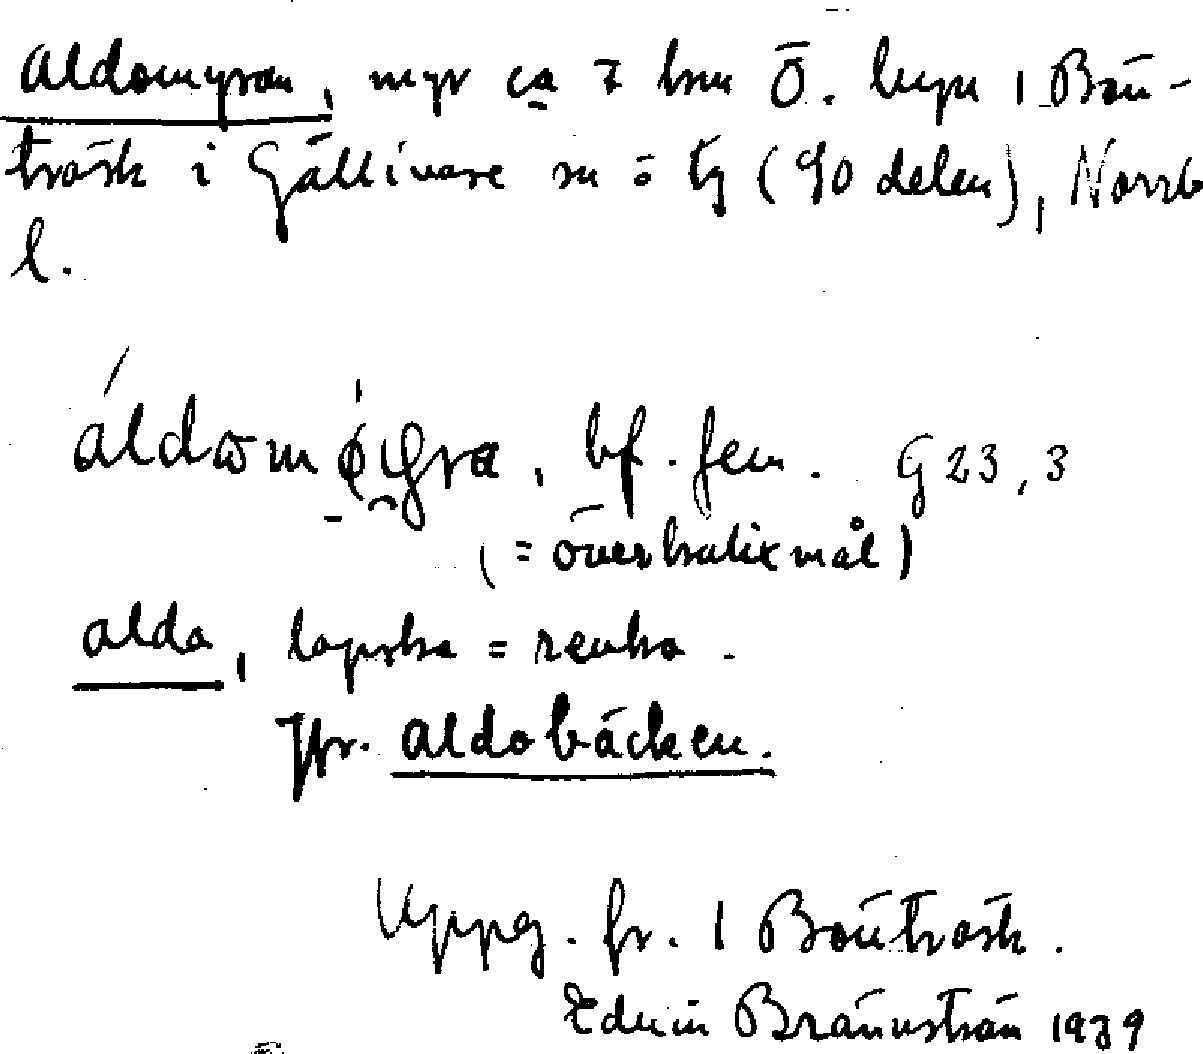 Aldomyran, myr ca 7 km Ö. byn 1 Bön-
träsk i Gällivare sn o tg (90 delen), Norrb
l.
bf. fem. G 23,3
(= överkalixmål)
alda, lapska = renko.
Jfr. Aldobäcken.
Uppg. fr. 1 Bönträsk.
Edvin Brännström 1939